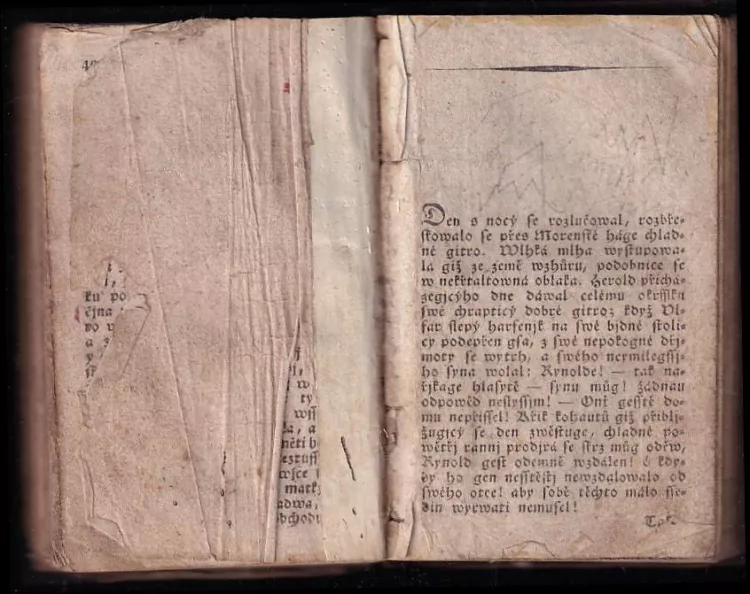 40
ku po
a
y
w
ty
wss
a, a
něti b
ezruss
wsce
matk
adwa,
bchodu
Den s nocý se rozlučowal, rozbře-
skowalo se přes Morenské háge chlad-
né gitro. Wlhká mlha wystupowa-
la giž ze země wzhůru, podobnice se
w nekrtaltowná oblaka. Herold přichá-
zegjcýho dne dáwal celému okrssku
swé chrapticý dobré gitro; když Ul-
far slepý harfenjk na swé bjdné stoli-
cy podepřen gsa, z swé nepokogné dřj-
moty se wytrh, a swého neymilegssj-
ho syna wolal: Rynolde! — tak na-
řjkage hlasytě — synu můg! žádnau
odpowěd neslyssjm! — Onť gesstě do-
mu nepřissel! Křik kohautů giž přiblj-
žugjcý se den zwěstuge, chladné po-
wětřj rannj prodjrá se skrz můg oděw,
Rynold gest odemně wzdálen! ó kdy-
by ho gen nesstěstj newzdalowalo od
swého otce! aby sobě těchto málo sse-
din wyrwati nemusel!